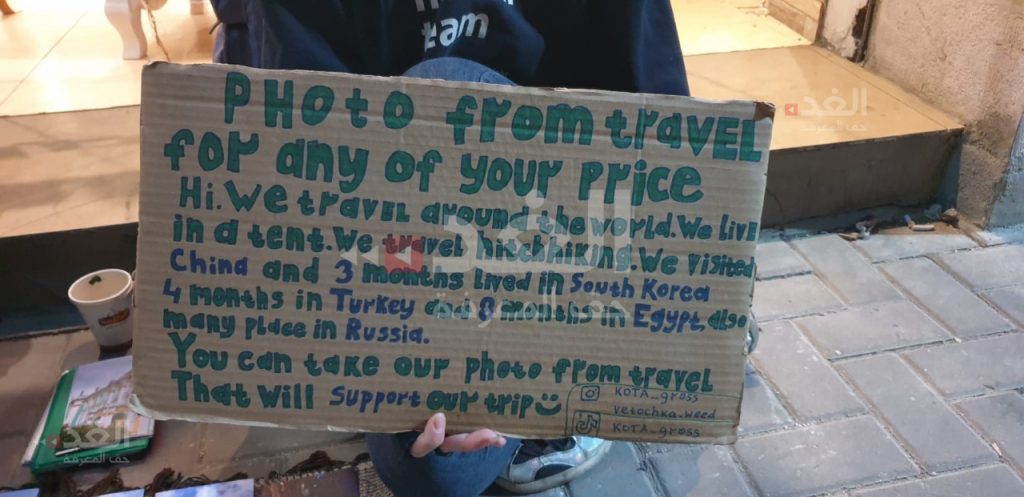 team
PHoto from travel
for any of your price
Hi. We travel around the world. We live
in a tent. We travel hitchhiking. We visited
China and 3 months lived in South Korea
4 months in Turkey and 8 months in Egypt, also
many place in Russia.
You can take our photo from travel
That will support our trip
KOTA_gross
vetochka.weed
KOTA_gross
الغد
حق المعرفة
الغد
حق المعرفة
الغد
حق المعرفة